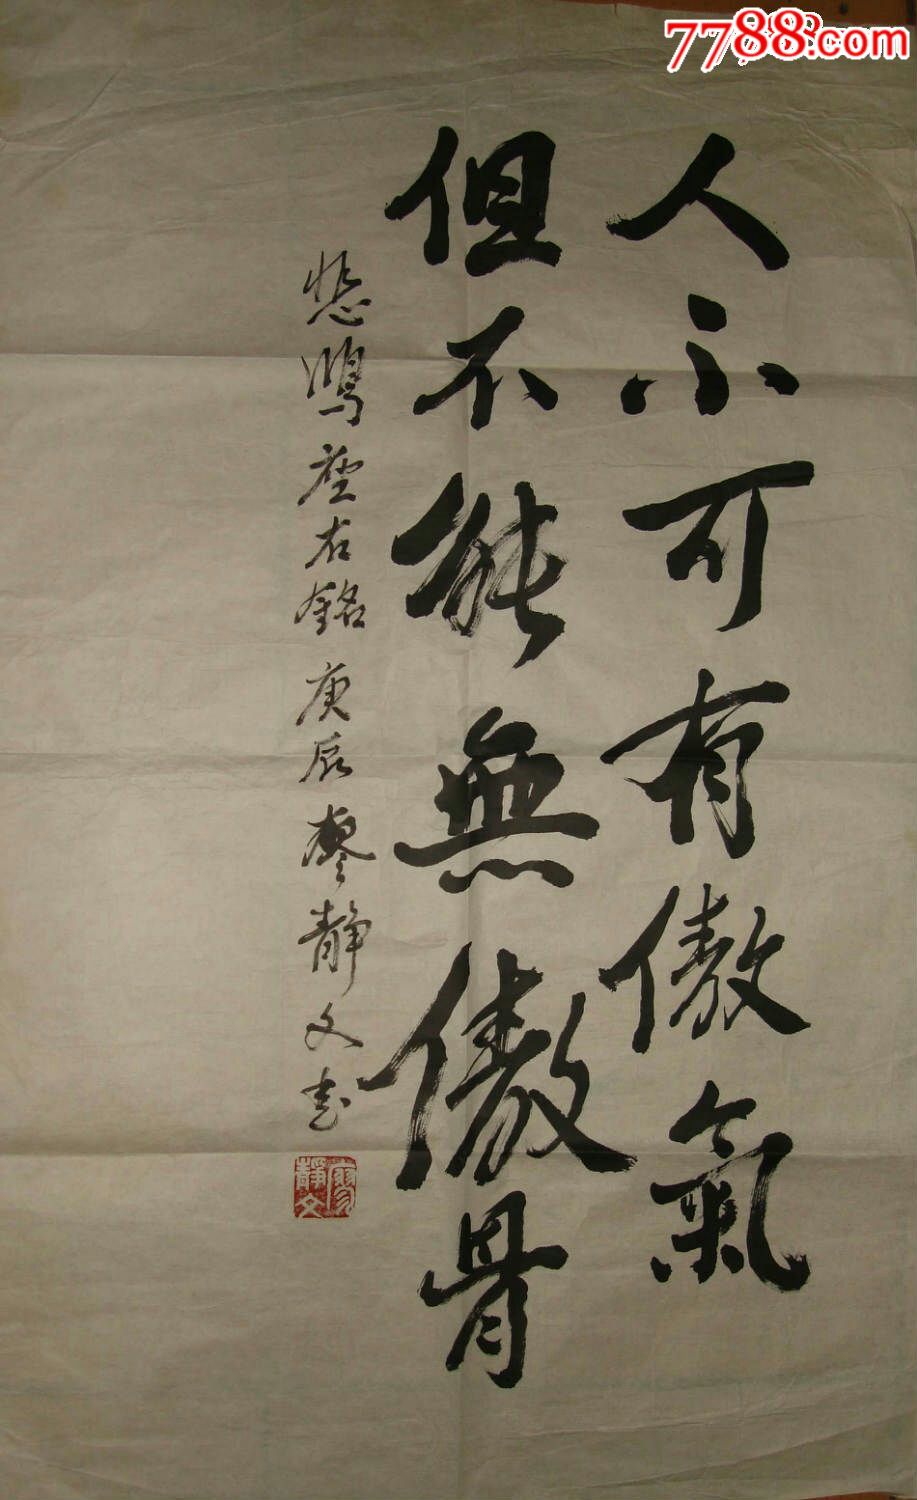 7788.com
人不可有傲氣
但不能無傲骨
悲鴻座右銘庚辰廖靜文書
廖靜文